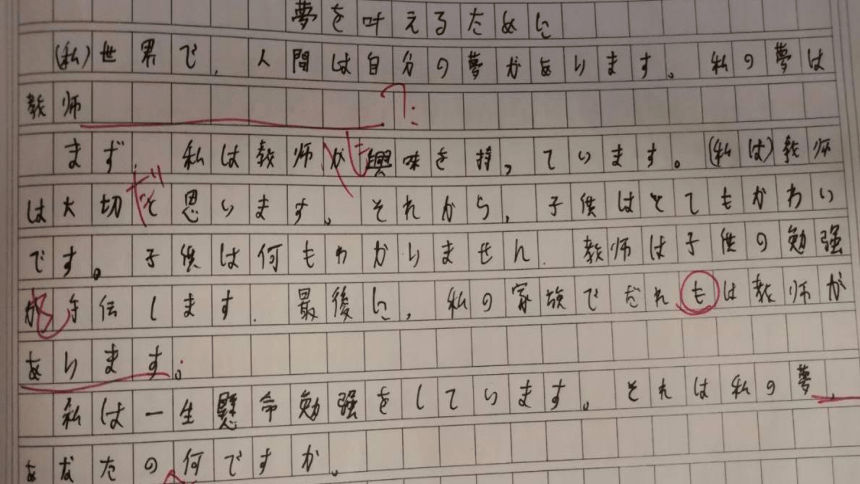 夢を叶えるために
(私)世界で、人間は自分の夢があります。私の夢は
教師
まず、私は教師が興味を持っています。(私は)教師
は大切だと思います。それから、子供はとてもかわい
です。子供は何もわかりません。教師は子供の勉強
が手伝します。最後に、私の家族でだれもは教師が
あります。
私は一生懸命勉強をしています。それは私の夢、
あなたの何ですか。